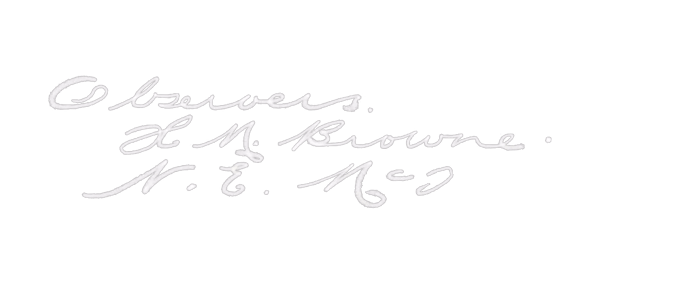 Observers.
H M. Browne.
N. E. McI